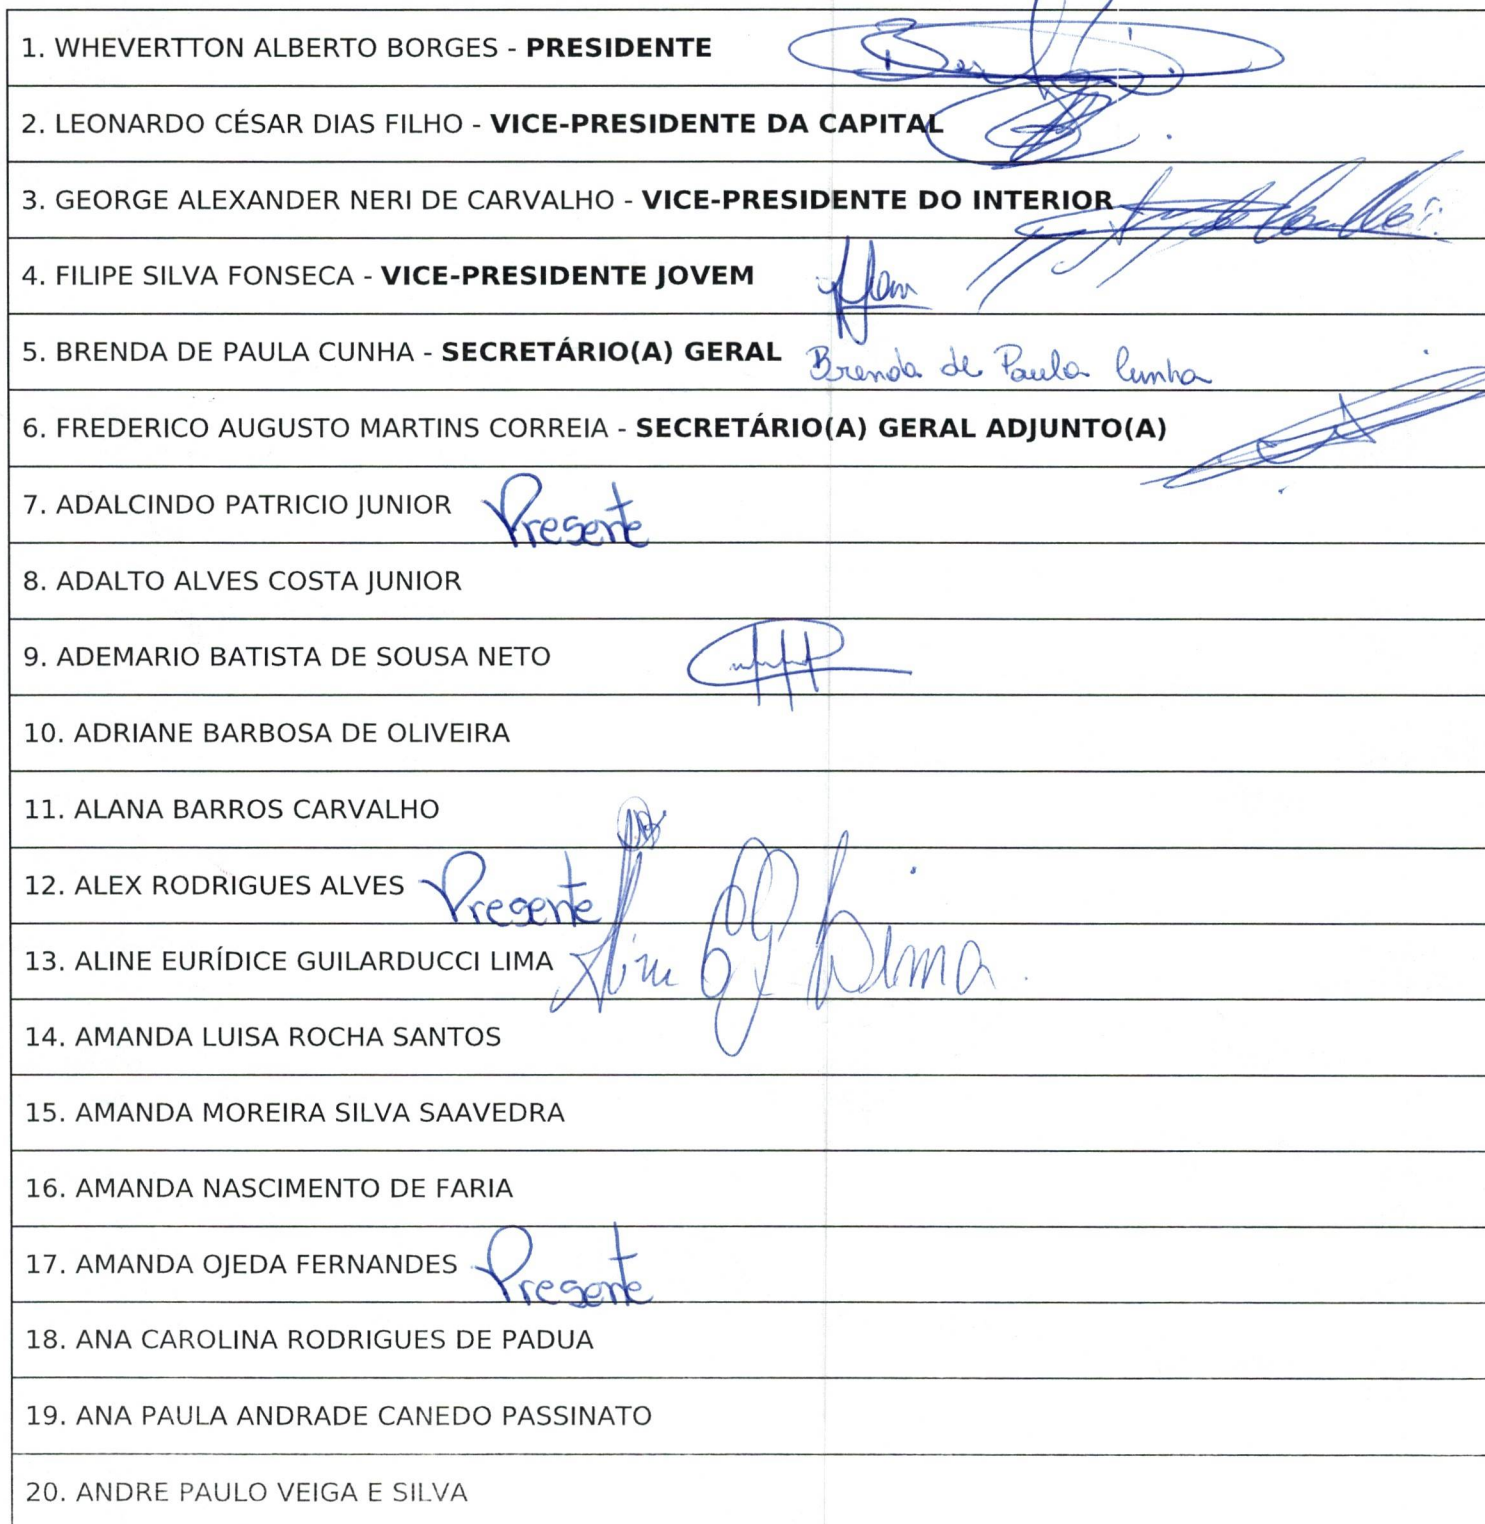 1. WHEVERTTON ALBERTO BORGES - PRESIDENTE
2. LEONARDO CÉSAR DIAS FILHO - VICE-PRESIDENTE DA CAPITAL
3. GEORGE ALEXANDER NERI DE CARVALHO - VICE-PRESIDENTE DO INTERIOR
4. FILIPE SILVA FONSECA - VICE-PRESIDENTE JOVEM
5. BRENDA DE PAULA CUNHA - SECRETÁRIO(A) GERAL Brenda de Paula Cunha
6. FREDERICO AUGUSTO MARTINS CORREIA - SECRETÁRIO(A) GERAL ADJUNTO(A)
7. ADALCINDO PATRICIO JUNIOR Presente
8. ADALTO ALVES COSTA JUNIOR
9. ADEMARIO BATISTA DE SOUSA NETO
10. ADRIANE BARBOSA DE OLIVEIRA
11. ALANA BARROS CARVALHO
12. ALEX RODRIGUES ALVES Presente
13. ALINE EURÍDICE GUILARDUCCI LIMA Aline EG Lima
14. AMANDA LUISA ROCHA SANTOS
15. AMANDA MOREIRA SILVA SAAVEDRA
16. AMANDA NASCIMENTO DE FARIA
17. AMANDA OJEDA FERNANDES Presente
18. ANA CAROLINA RODRIGUES DE PADUA
19. ANA PAULA ANDRADE CANEDO PASSINATO
20. ANDRE PAULO VEIGA E SILVA